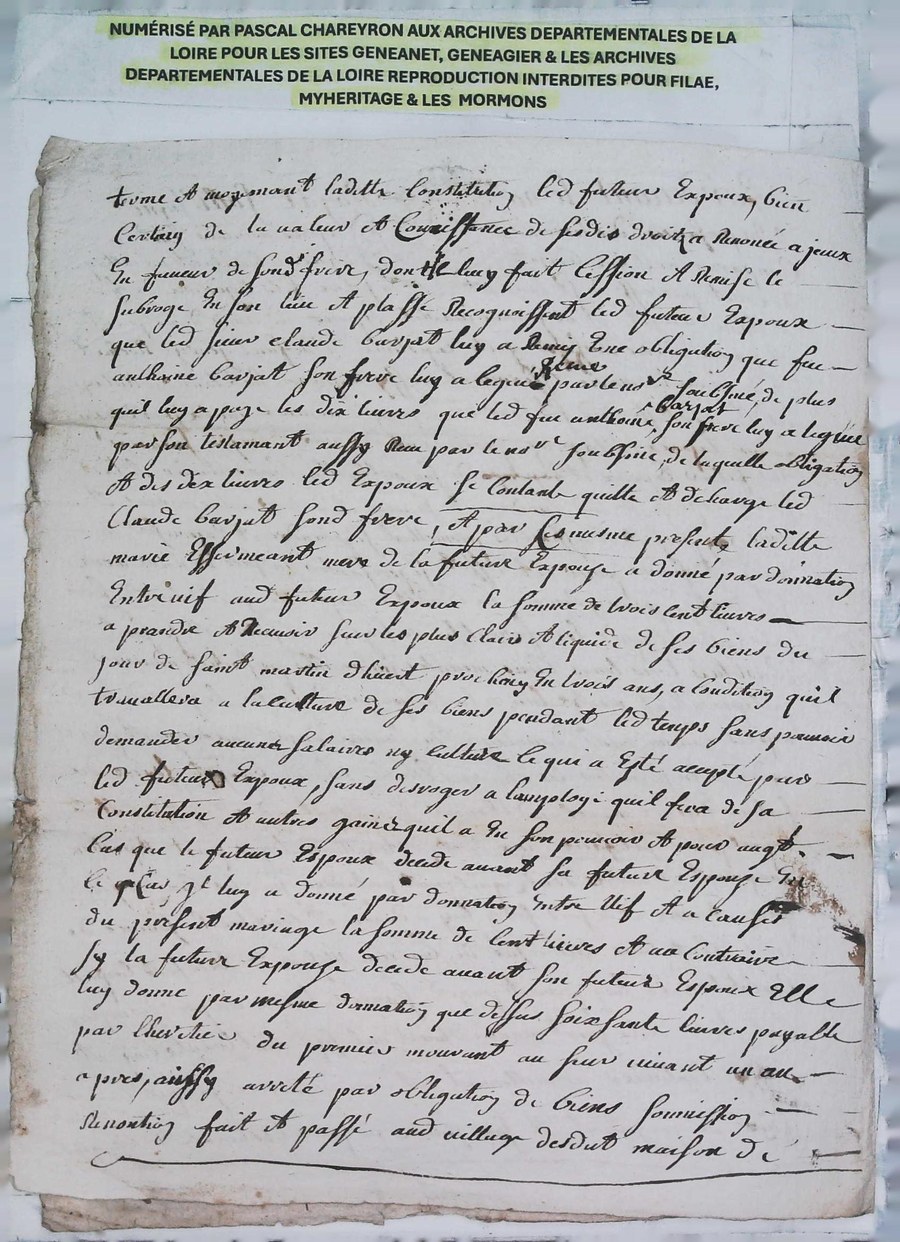 NUMÉRISÉ PAR PASCAL CHAREYRON AUX ARCHIVES DEPARTEMENTALES DE LA
LOIRE POUR LES SITES GENEANET, GENEAGIER & LES ARCHIVES
DEPARTEMENTALES DE LA LOIRE REPRODUCTION INTERDITES POUR FILAE,
MYHERITAGE & LES MORMONS
terme Et moyenant laditte Constitution led futeur Expoux, bien
Certain de la valeur Et Conoissance de sesdis droitz a Renoncé a jceux
En faveur de sond frere, dont luy fait Cession Et Remise le
subroge En son lieu Et plasse Recognoissent led futeur Expoux
que led sieur claude barjat luy a Remy Une obligation que feu
anthoine barjat son frere luy a legué Receue par le nore soubsiné, de plus
quil luy a paye les dix livres que led feu anthoine barjat son frere luy a legüé
par son testamant aussy Receu par le nore soubsiné, de laquelle obligation
Et des dix livres led Expoux se Contante quitte Et decharge led
Claude barjat sond frere, Et par Ces mesme presents, laditte
marie mere de la future Expouse a donné par donnation
Entre vif aud futeur Expoux la somme de trois Cent livres
a prandre Et Recevoir sur les plus Clairs Et liquide de ses biens du
jour de saint martin dhivert prochain En trois ans, a Condition quil
travallera a la Culture de ses biens pendant led temps sans pouvoir
demander aucunes salaires ny culture Ce qui a Esté accepté par
led futeur Expoux, sans desroger a lamploye quil fera de sa
Constitution Et autres gains quil a En son pouvoir Et pour augt.
Cas que le futeur Espoux decede avant sa future Espouze En
Ce Cas, Jl luy a donné par donnation Entre Vif Et a Causes
du présent mariage la somme de Cent livres Et au Contraire
sy la future Expouze decede avant son futeur Espoux Elle
luy donne par mesme donnation que dessus soixsante livres payable
par lheretier du premier mourant au survivant un an
apres, aissy arreté par obligation de biens soumission
Renontion fait Et passé aud village desdut maison de